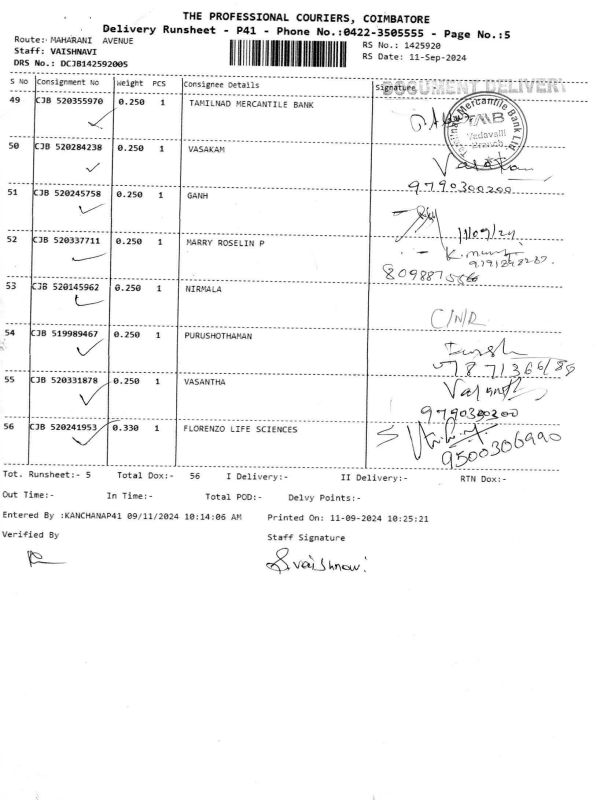 THE PROFESSIONAL COURIERS, COIMBATORE
Delivery Runsheet - P41 - Phone No.:0422-3505555 - Page No.:5
Route: MAHARANI AVENUE
RS No.: 1425920
Staff: VAISHNAVI
RS Date: 11-Sep-2024
DRS No.: DCJB142592005
DOCUMENT DELIVERY
S No Consignment No Weight PCS Consignee Details Signature
49 CJB 520355970 0.250 1 TAMILNAD MERCANTILE BANK
Tamilnad Mercantile Bank Ltd
TMB
Vadavalli
Branch
50 CJB 520284238 0.250 1 VASAKAM
9790300200
51 CJB 520245758 0.250 1 GANH
11/09/24
52 CJB 520337711 0.250 1 MARRY ROSELIN P
53 CJB 520145962 0.250 1 NIRMALA
C/N/R
54 CJB 519989467 0.250 1 PURUSHOTHAMAN
55 CJB 520331878 0.250 1 VASANTHA
9790300200
56 CJB 520241953 0.330 1 FLORENZO LIFE SCIENCES
9500306990
Tot. Runsheet:- 5 Total Dox:- 56 I Delivery:- II Delivery:- RTN Dox:-
Out Time:- In Time:- Total POD:- Delvy Points:-
Entered By :KANCHANAP41 09/11/2024 10:14:06 AM Printed On: 11-09-2024 10:25:21
Verified By Staff Signature
S.vaishnavi